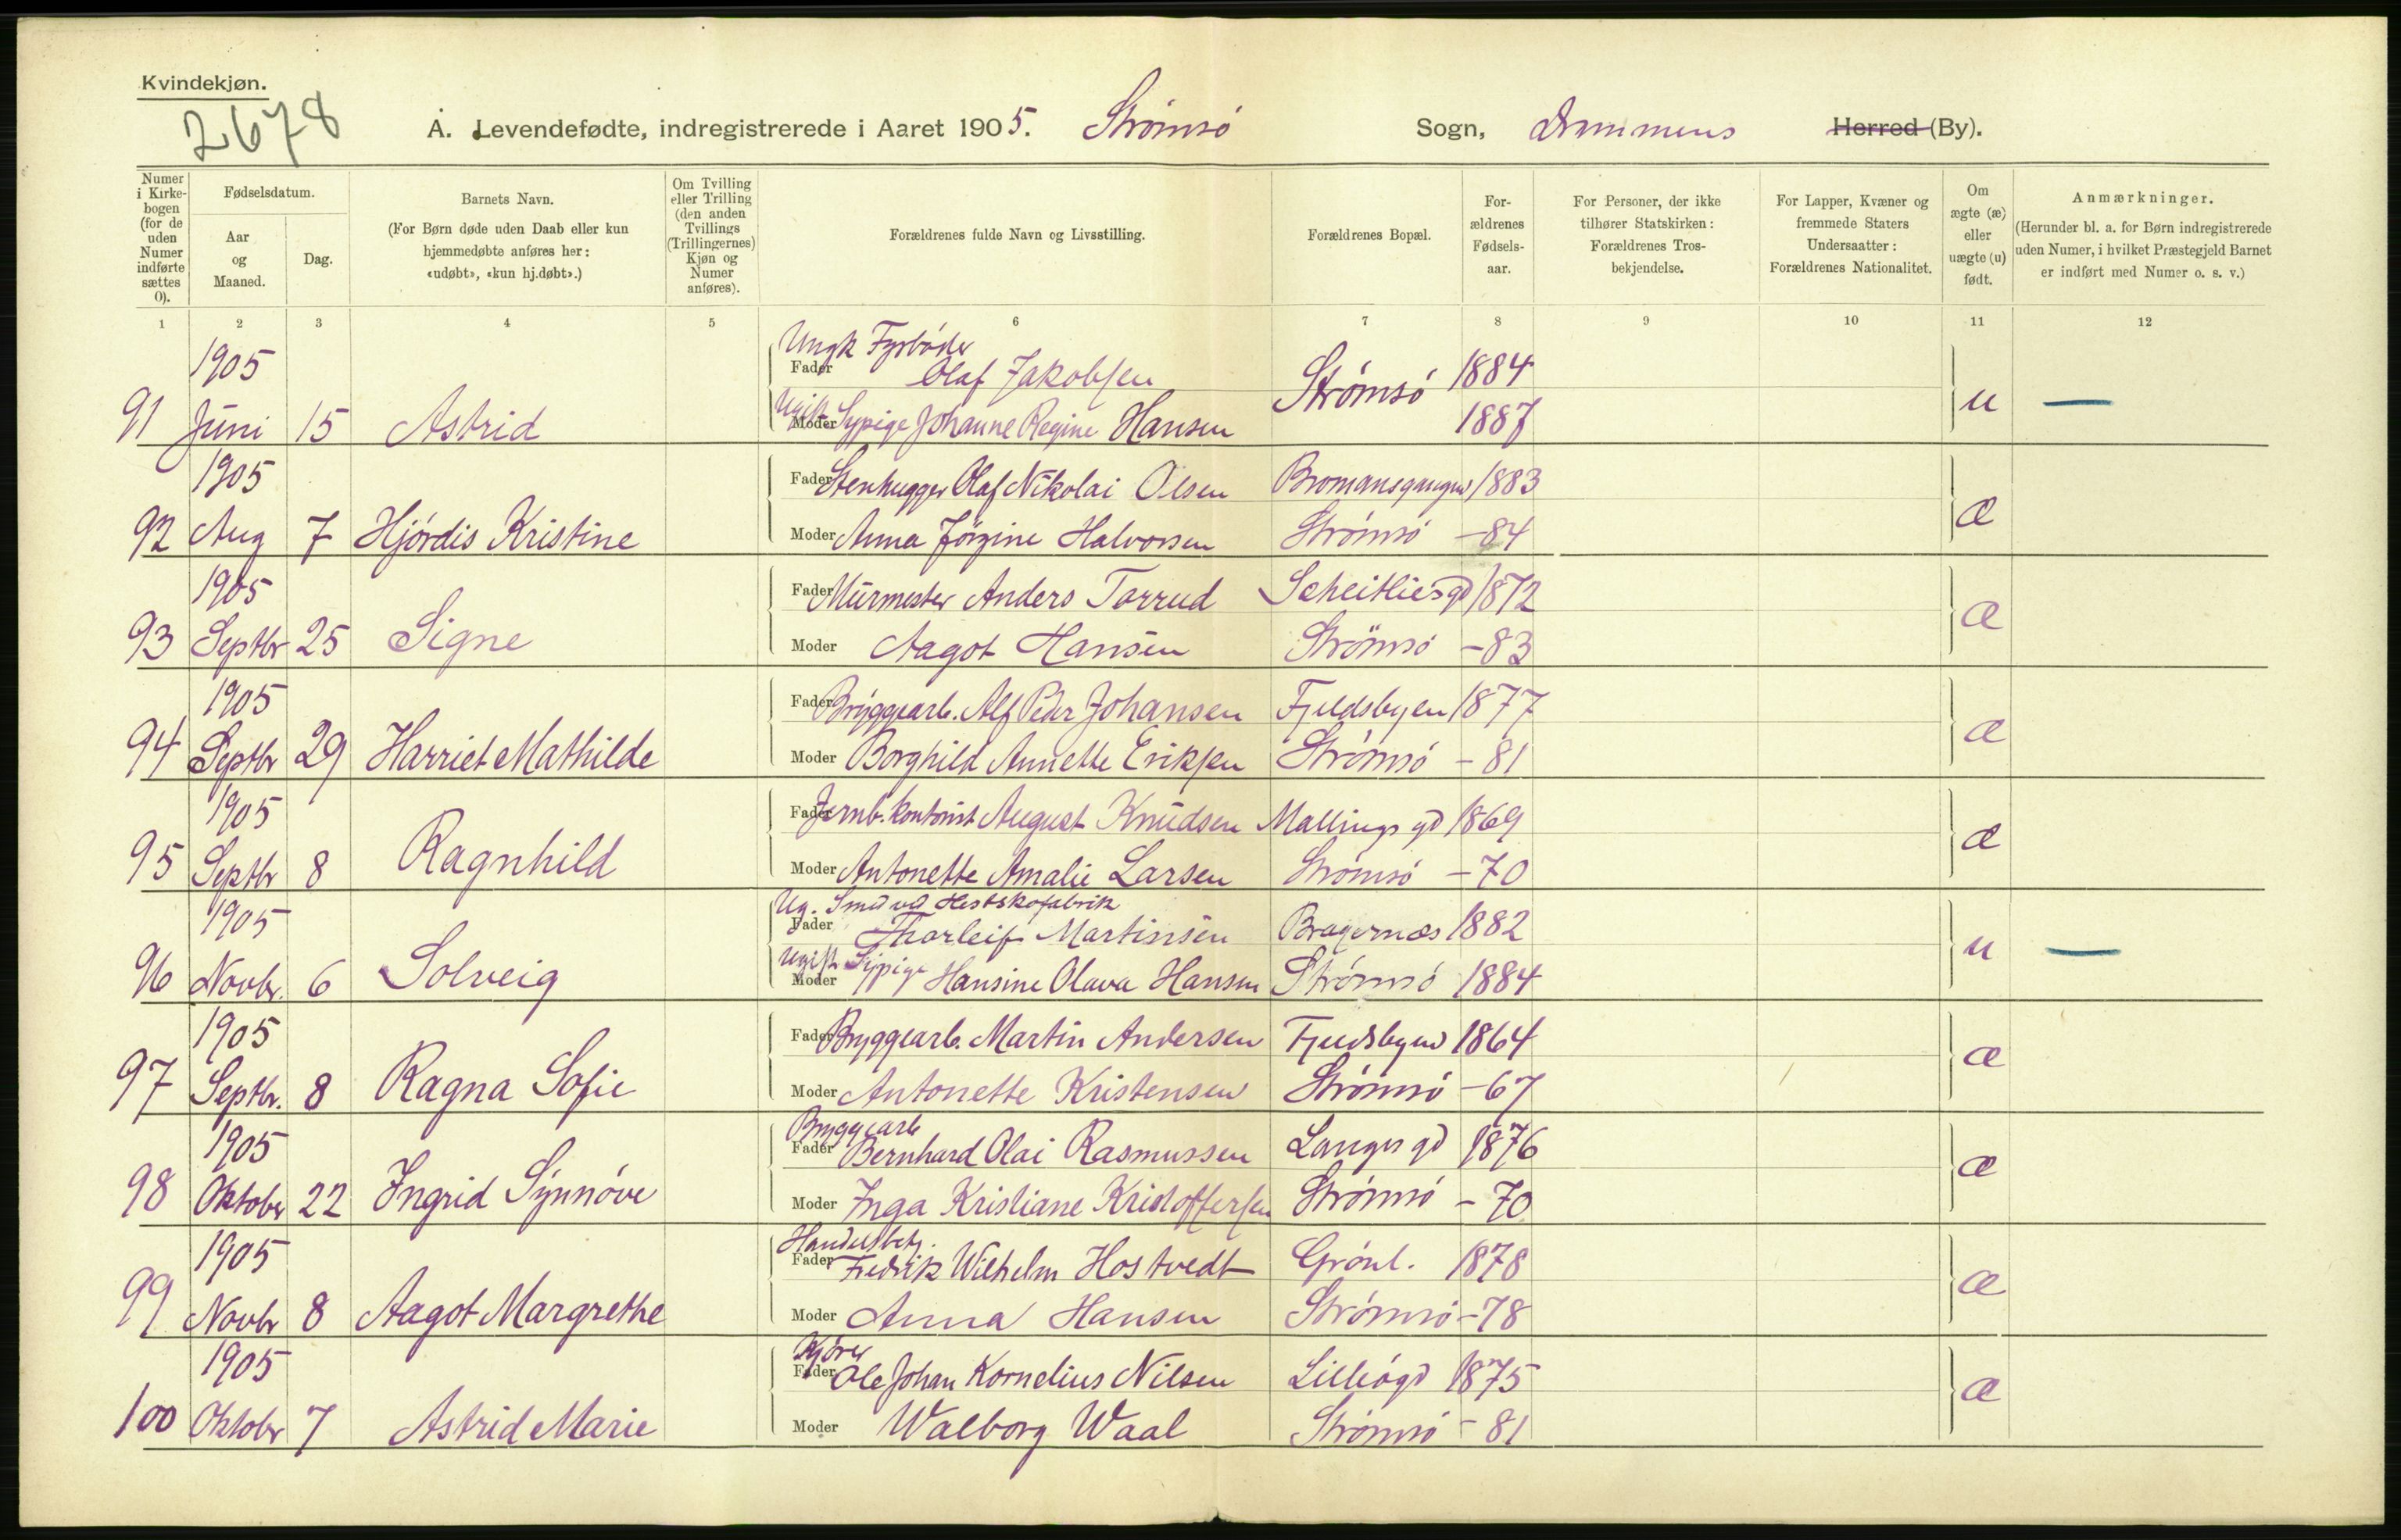 Kvindekjøn.
2678
A. Levendefødte, indregistrerede i Aaret 1905. Strømsø Sogn, Drammens Herred (By).
Numer i Kirkebogen (for de uden Numer indførte sættes 0).
Fødselsdatum.
Aar og Maaned.
Dag.
Barnets Navn.
(For Børn døde uden Daab eller kun hjemmedøbte anføres her: «udøbt», «kun hj.døbt».)
Om Tvilling eller Trilling (den anden Tvillings (Trillingernes) Kjøn og Numer anføres).
Forældrenes fulde Navn og Livsstilling.
Forældrenes Bopæl.
Forældrenes Fødselsaar.
For Personer, der ikke tilhører Statskirken: Forældrenes Trosbekjendelse.
For Lapper, Kvæner og fremmede Staters Undersaatter: Forældrenes Nationalitet.
Om ægte (æ) eller uægte (u) født.
Anmærkninger.
(Herunder bl. a. for Børn indregistrerede uden Numer, i hvilket Præstegjeld Barnet er indført med Numer o. s. v.)
1 2 3 4 5 6 7 8 9 10 11 12
1905 Ungk Fyrbøder
Fader Olaf Jakobsen Strømsø 1884
91 Juni 15 Astrid Ugift Moder Sypige Johanne Regine Hansen 1887 u —
1905 Fader Stenhugger Olaf Nikolai Olsen Bromansgangen 1883
92 Aug 7 Hjördis Kristine Moder Anna Jörgine Halvorsen Strømsø -84 æ
1905 Fader Murmester Anders Torrud Scheitliesgd 1872
93 Septbr 25 Signe Moder Aagot Hansen Strømsø -83 æ
1905 Fader Bryggearb. Alf Peder Johansen Fjeldsbyen 1877
94 Septbr 29 Harriet Mathilde Moder Borghild Annette Eriksen Strømsø -81 æ
1905 Fader Jernb. Kontorist August Knudsen Mallings gd 1869
95 Septbr 8 Ragnhild Moder Antonette Amalie Larsen Strømsø -70 æ
1905 Ug. Smed ved Hestskofabrik
Fader Thorleif Martinsen Bragernæs 1882
96 Novbr. 6 Solveig Ugift Moder Sypige Hansine Olava Hansen Strømsø 1884 u —
1905 Fader Bryggearb. Martin Andersen Fjeldsbyen 1864
97 Septbr. 8 Ragna Sofie Moder Antonette Kristensen Strømsø -67 æ
1905 Bryggearb
Fader Bernhard Olai Rasmussen Langes gd 1876
98 Oktober 22 Ingrid Synnöve Moder Inga Kristiane Kristoffersen Strømsø -70 æ
1905 Handelsbetj.
Fader Fredrik Wilhelm Hostvedt Grönl. 1878
99 Novbr 8 Aagot Margrethe Moder Anna Hansen Strømsø -78 æ
1905 Kjører
Fader Ole Johan Kornelius Nilsen Lilleögd 1875
100 Oktobr 7 Astrid Marie Moder Walborg Waal Strømsø -81 æ